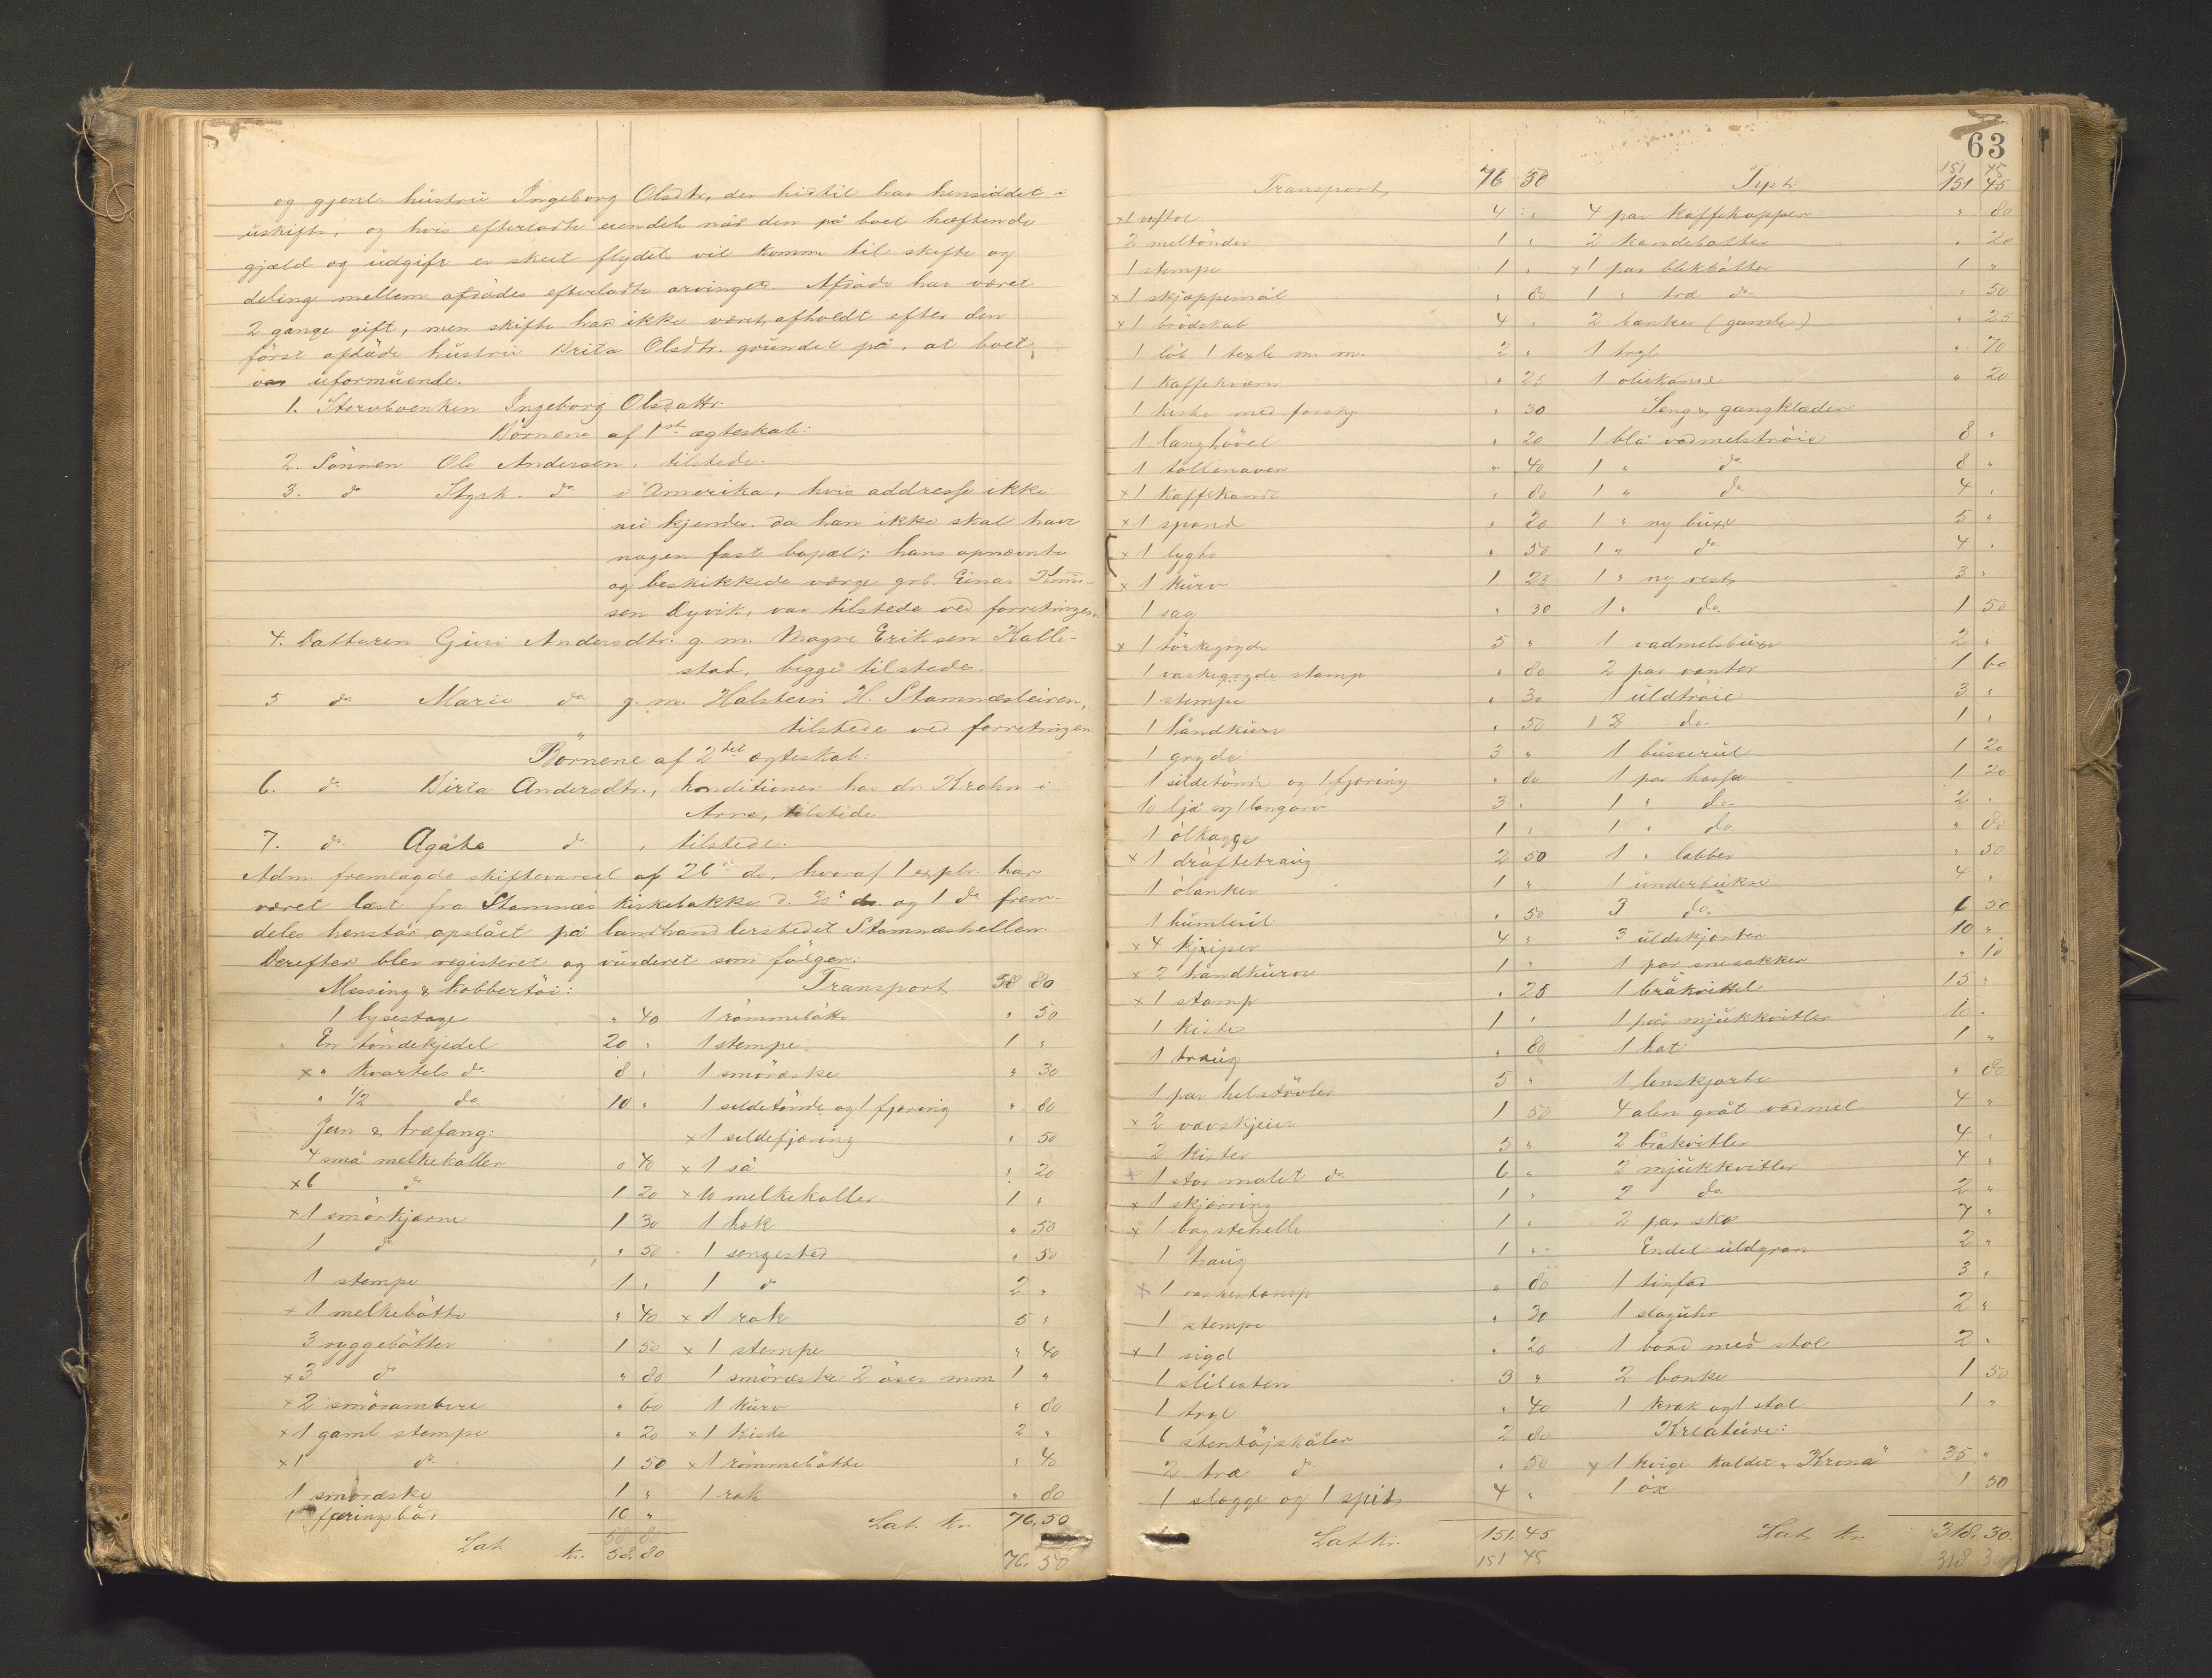 og gjenl. hustru Ingeborg Olsdtr, der hidtil har hensiddet i
uskifte, og hvis efterladte eiendele når den på boet hæftende
gjæld og udgift er skeet flydet vil komme til skifte og
deling mellem afdødes efterladte arvinger. Afdøde har været
2 gange gift, men skifte har ikke været afholdt efter den
först afdöde hustru Brita Olsdtr. grundet på, at boet
var uformuende.
1. Stervboenken Ingeborg Olsdattr.
Börnene af 1st ægteskab:
2. Sönnen Ole Andersen, tilstede.
3. do Styrk. do i Amerika, hvis addresse ikke
nu kjendes. da han ikke skal have
nogen fast bopæl; hans opnævnte
og beskikkede værge grb. Einar
sen Dyvik, var tilstede ved forretningen
4. Datteren Guri Andersdtr. g. m. Magne Eriksen Kalle-
stad, begge tilstede.
5 do. Marie do g. m. Halstein H. Stamnæsleiren,
tilstede ved forretningen
Börnene af 2det ægteskab:
6. do Birta Andersdtr., konditioner hos dr. Krohn i
Arne, tilstede
7. do Agåte do, tilstede.
Adm. fremlagde skiftevarsel af 26de ds. hvoraf 1 explr. har
været læst fra Stamnæs kirkebakke d. 30te ds. og 1 do frem-
deles henstår opslået på landhandlerstedet Stamneshellen.
Derefter blev registeret og vurderet som fölger:
Messing & kobbertöi:
1 lysestage " 40
En töndekjedel 20 "
x " kvartels do 8 "
" 1/2 do 10 "
Jern & træfang:
4 små melkekoller " 40
x 6 do 1 20
x 1 smörkjærne 1 30
1 do " 50
1 stempe 1 "
x 1 melkebötte " 40
3 ryggebötter 1 50
x 3 do " 80
x 2 smörambere " 60
x 1 gaml stempe " 20
x 1 do 1 50
1 smöræske 1 "
1 færingsbåd 10 "
58 80
Lat. kr. 58,80
Transport 58 80
1 römmebötte " 50
1 stempe 1 "
1 smöræske " 30
1 sildetönde og 1 fjæring " 80
x 1 sildefjæring " 50
x 1 så " 20
x 10 melkekoller 1 "
1 hek " 50
1 sengested " 50
1 do 2 "
x 1 rok 5 "
x 1 stempe " 40
1 smöræske 2 öser m.m 1 "
1 kurv " 80
x 1 kiste 2 "
x 1 römmebötte " 40
1 rok " 80
Lat. kr. 76,50
76,50
63
Transport 76 50
x 1 vefstol 4 "
2 meltönder 1 "
1 stempe 1 "
x 1 skjæppemål " 80
x 1 brödskab 4 "
1 löb 1 texle m. m. 2 "
1 kaffekværn " 25
1 kiste med forskj. " 30
1 langhövel " 20
1 tollenaver " 40
x 1 kaffekande " 80
x 1 spand " 20
x 1 lygte " 50
x 1 kurv 1 25
1 sag " 30
x 1 törkegryde 5 "
1 vaskegryde stamp " 80
1 stempe " 30
1 håndkurv " 50
1 gryde 3 "
1 sildetönde og 1 fjæring " 80
10 ljå og 1 langorv 3 "
1 ölkagge 1 "
x 1 dröftetraug 2 50
1 ölanker 1 "
1 humlesil " 50
x 4 kjiper 4 "
x 2 håndkurve 1 "
x 1 stamp " 25
1 kiste 1 "
1 traug " 80
1 par helstövler 5 "
x 2 vævskjeier 1 50
2 kister 5 "
x 1 stor malet do 6 "
x 1 skjæring 1 "
x 1 bagstehelle 1 "
1 traug 1 "
x 1 vaskestamp " 80
1 stempe " 30
x 1 sigd " 20
1 slibesten 3 "
1 tryl " 40
6 stentöjskåler 2 80
2 træ do " 50
1 slogge og 1 spid 4 "
Lat kr. 151,45
151 45
151 45
Tspt. 151 45
4 par kaffekopper " 80
2 kandebøtter " 20
x 1 par blikbötter 1 "
1 " træ do " 50
2 bænker (gamle) " 25
1 tryl " 70
1 oliekande " 20
Seng & gangklæder
1 blå vadmelströie 8 "
1 " do 8 "
1 " do 4 "
1 " ny buxe 5 "
1 " do 4 "
1 " ny vest 3 "
1 " do 1 50
1 vadmelsbuxe 2 "
2 par vanter 1 60
1 uldtröie 3 "
1 do 1 "
1 busserul 1 20
1 par hoser 1 20
1 " do 2 "
1 " do " 80
1 " labber " 50
1 underbukse 4 "
3 do 6 50
3 uldskjorter 10 "
1 par snesokker " 10
1 bråkvittel 15 "
1 par mjukkvitler 10 "
1 hat 1 "
1 lenskjorte " 80
4 alen gråt vadmel 4 "
2 bråkvitler 4 "
2 mjukkvitler 4 "
2 do 2 "
2 par sko 7 "
Endel uldgarn 2 "
1 tinfad 3 "
1 slaguhr 2 "
1 bord med stol 2 "
2 bænke 1 50
1 krak og 1 stol 1 "
Kreature:
x 1 kvige kaldet "Krona" 35 "
1 öx 1 50
Lat. kr. 318,30.
318 30